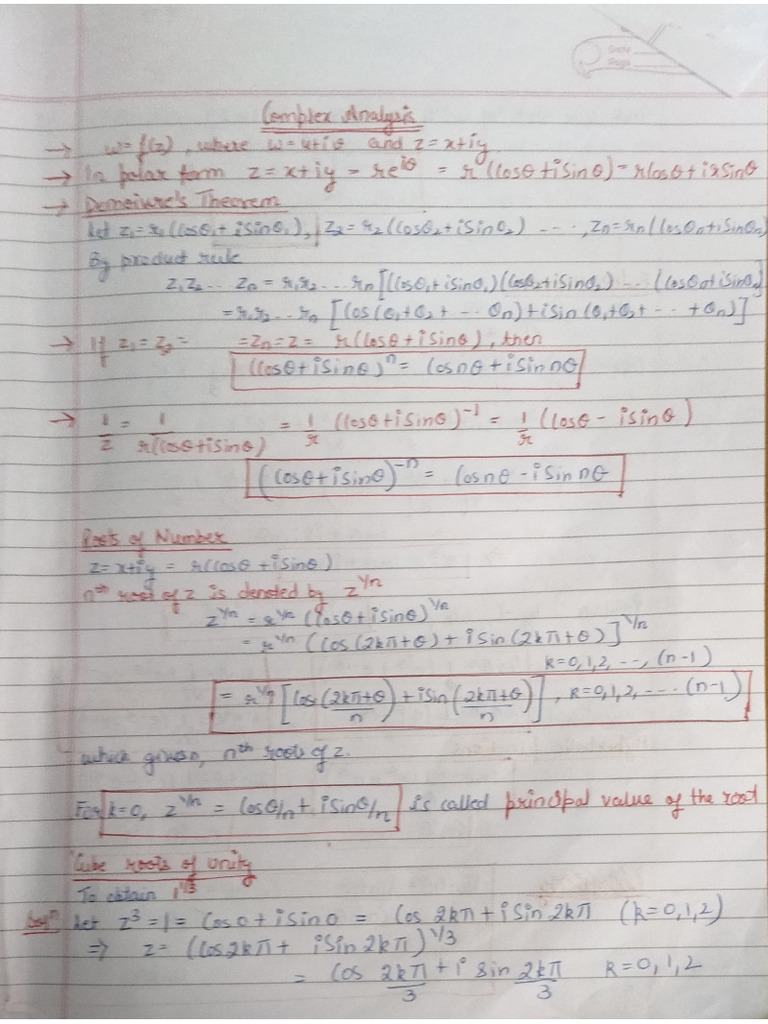 Date
Page
Complex Analysis
→ w=f(z), where w=u+iv and z=x+iy
→ In polar form z=x+iy = re^{iθ} = r(cosθ+isinθ)=rcosθ+irsinθ
→ Demoivre's Theorem
Let z₁=r₁(cosθ₁+isinθ₁), z₂=r₂(cosθ₂+isinθ₂) ---, zn=rn(cosθn+isinθn)
By product rule
z₁z₂--- zn = r₁r₂---rn[(cosθ₁+isinθ₁)(cosθ₂+isinθ₂)--- (cosθn+isinθn)]
=r₁r₂--rn [(cos(θ₁+θ₂+ -- θn)+isin(θ₁+θ₂+--+θn)]
→ If z₁=z₂= =zn=z= r(cosθ+isinθ), then
(cosθ+isinθ)^n = cosnθ+isin nθ
→ 1/z = 1/r(cosθ+isinθ) = 1/r (cosθ+isinθ)^{-1} = 1/r (cosθ-isinθ)
(cosθ+isinθ)^{-n} = cosnθ-isin nθ
Roots of Number
z=x+iy = r(cosθ+isinθ)
nth root of z is denoted by z^{1/n}
z^{1/n} = r^{1/n} (cosθ+isinθ)^{1/n}
= r^{1/n} ((cos(2kπ+θ)+isin(2kπ+θ)]^{1/n}
k=0,1,2,--,(n-1)
= r^{1/n} [cos(2kπ+θ/n)+isin(2kπ+θ/n)], k=0,1,2,---(n-1)
which gives n, nth roots of z.
For k=0, z^{1/n} = cosθ/n+isinθ/n is called principal value of the root
Cube roots of unity
To obtain 1^{1/3}
Solⁿ Let z³=1=cos0+isin0 = cos 2kπ+isin 2kπ (k=0,1,2)
⇒ z=(cos2kπ+ isin 2kπ)^{1/3}
= cos 2kπ/3 + i sin 2kπ/3 k=0,1,2